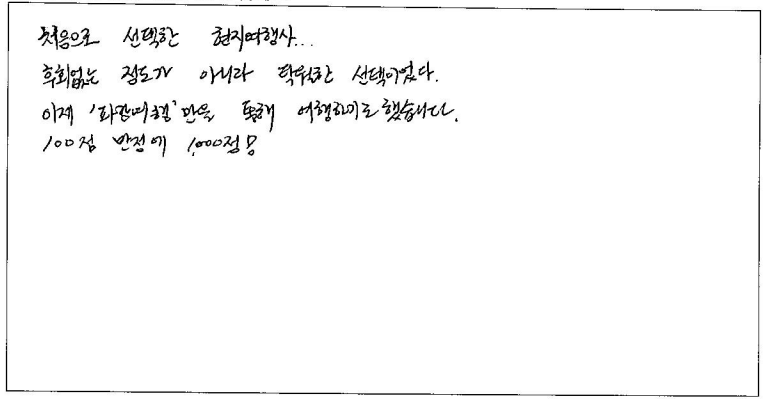 처음으로 선택한 현지여행사...
후회없는 정도가 아니라 탁월한 선택이었다.
이제 '파랑여행'만을 통해 여행하기로 했습니다.
100점 만점에 1,000점!!